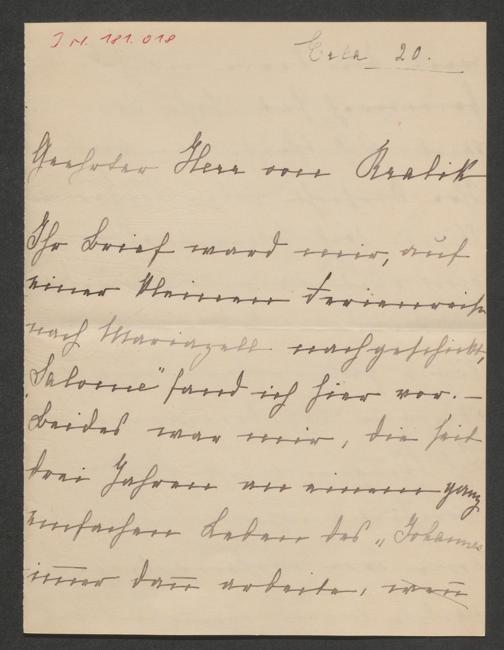 J.N. 181.018
Erla 20.
Geehrter Herr von Kralik
Ihr Brief ward mir, auf
einer kleinen Ferienreise
nach Mariazell nachgeschickt,
"Salome" fand ich hier vor. –
Beides war mir, die seit
drei Jahren an einem ganz
einfachen Leben des „Johannes
im̅er dan̅ arbeite, wen̅